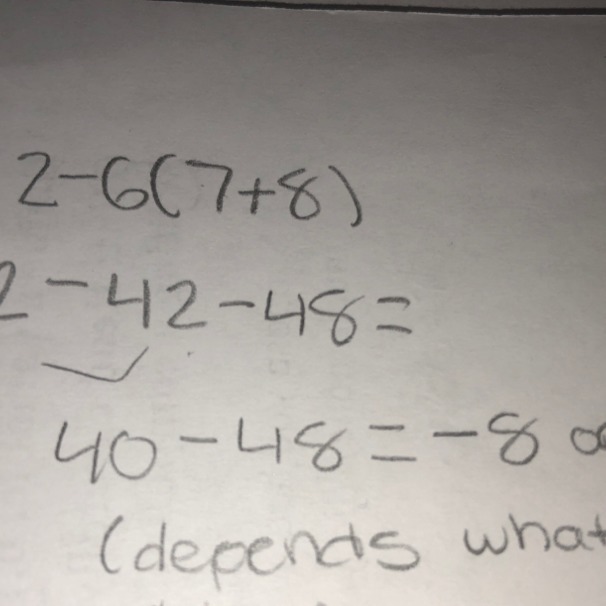 2-6(7+8)
2-42-48=
40-48=-8
(depends what